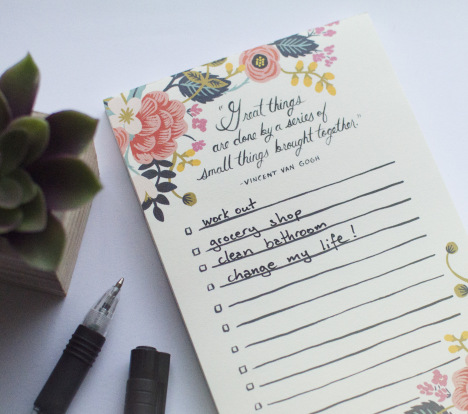 "Great things
are done by a series of
small things brought together."
-VINCENT VAN GOGH
work out
grocery shop
clean bathroom
change my life!